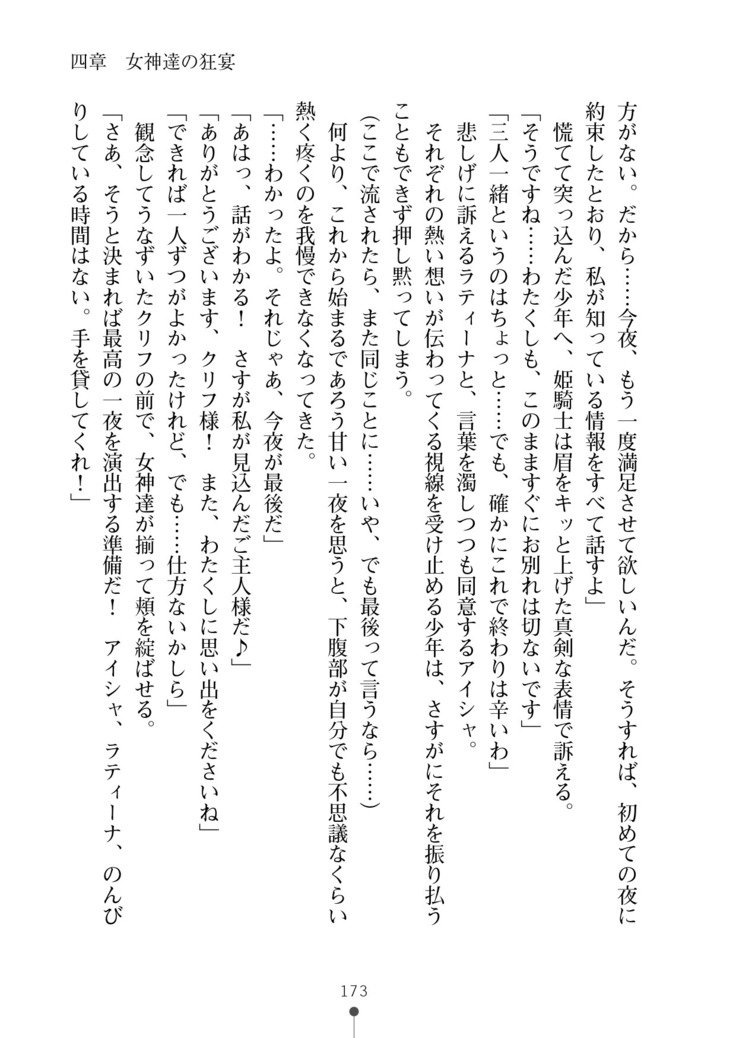 四章　女神達の狂宴
方がない。だから……今夜、もう一度満足させて欲しいんだ。そうすれば、初めての夜に
約束したとおり、私が知っている情報をすべて話すよ」
　慌てて突っ込んだ少年へ、姫騎士は眉をキッと上げた真剣な表情で訴える。
「そうですね……わたくしも、このまますぐにお別れは切ないです」
「三人一緒というのはちょっと……でも、確かにこれで終わりは辛いわ」
　悲しげに訴えるラティーナと、言葉を濁しつつも同意するアイシャ。
　それぞれの熱い想いが伝わってくる視線を受け止める少年は、さすがにそれを振り払う
こともできず押し黙ってしまう。
（ここで流されたら、また同じことに……いや、でも最後って言うなら……）
　何より、これから始まるであろう甘い一夜を思うと、下腹部が自分でも不思議なくらい
熱く疼くのを我慢できなくなってきた。
「……わかったよ。それじゃあ、今夜が最後だ」
「あはっ、話がわかる！　さすが私が見込んだご主人様だ♪」
「ありがとうございます、クリフ様！　また、わたくしに思い出をくださいね」
「できれば一人ずつがよかったけれど、でも……仕方ないかしら」
　観念してうなずいたクリフの前で、女神達が揃って頬を綻ばせる。
「さあ、そうと決まれば最高の一夜を演出する準備だ！　アイシャ、ラティーナ、のんび
りしている時間はない。手を貸してくれ！」
173